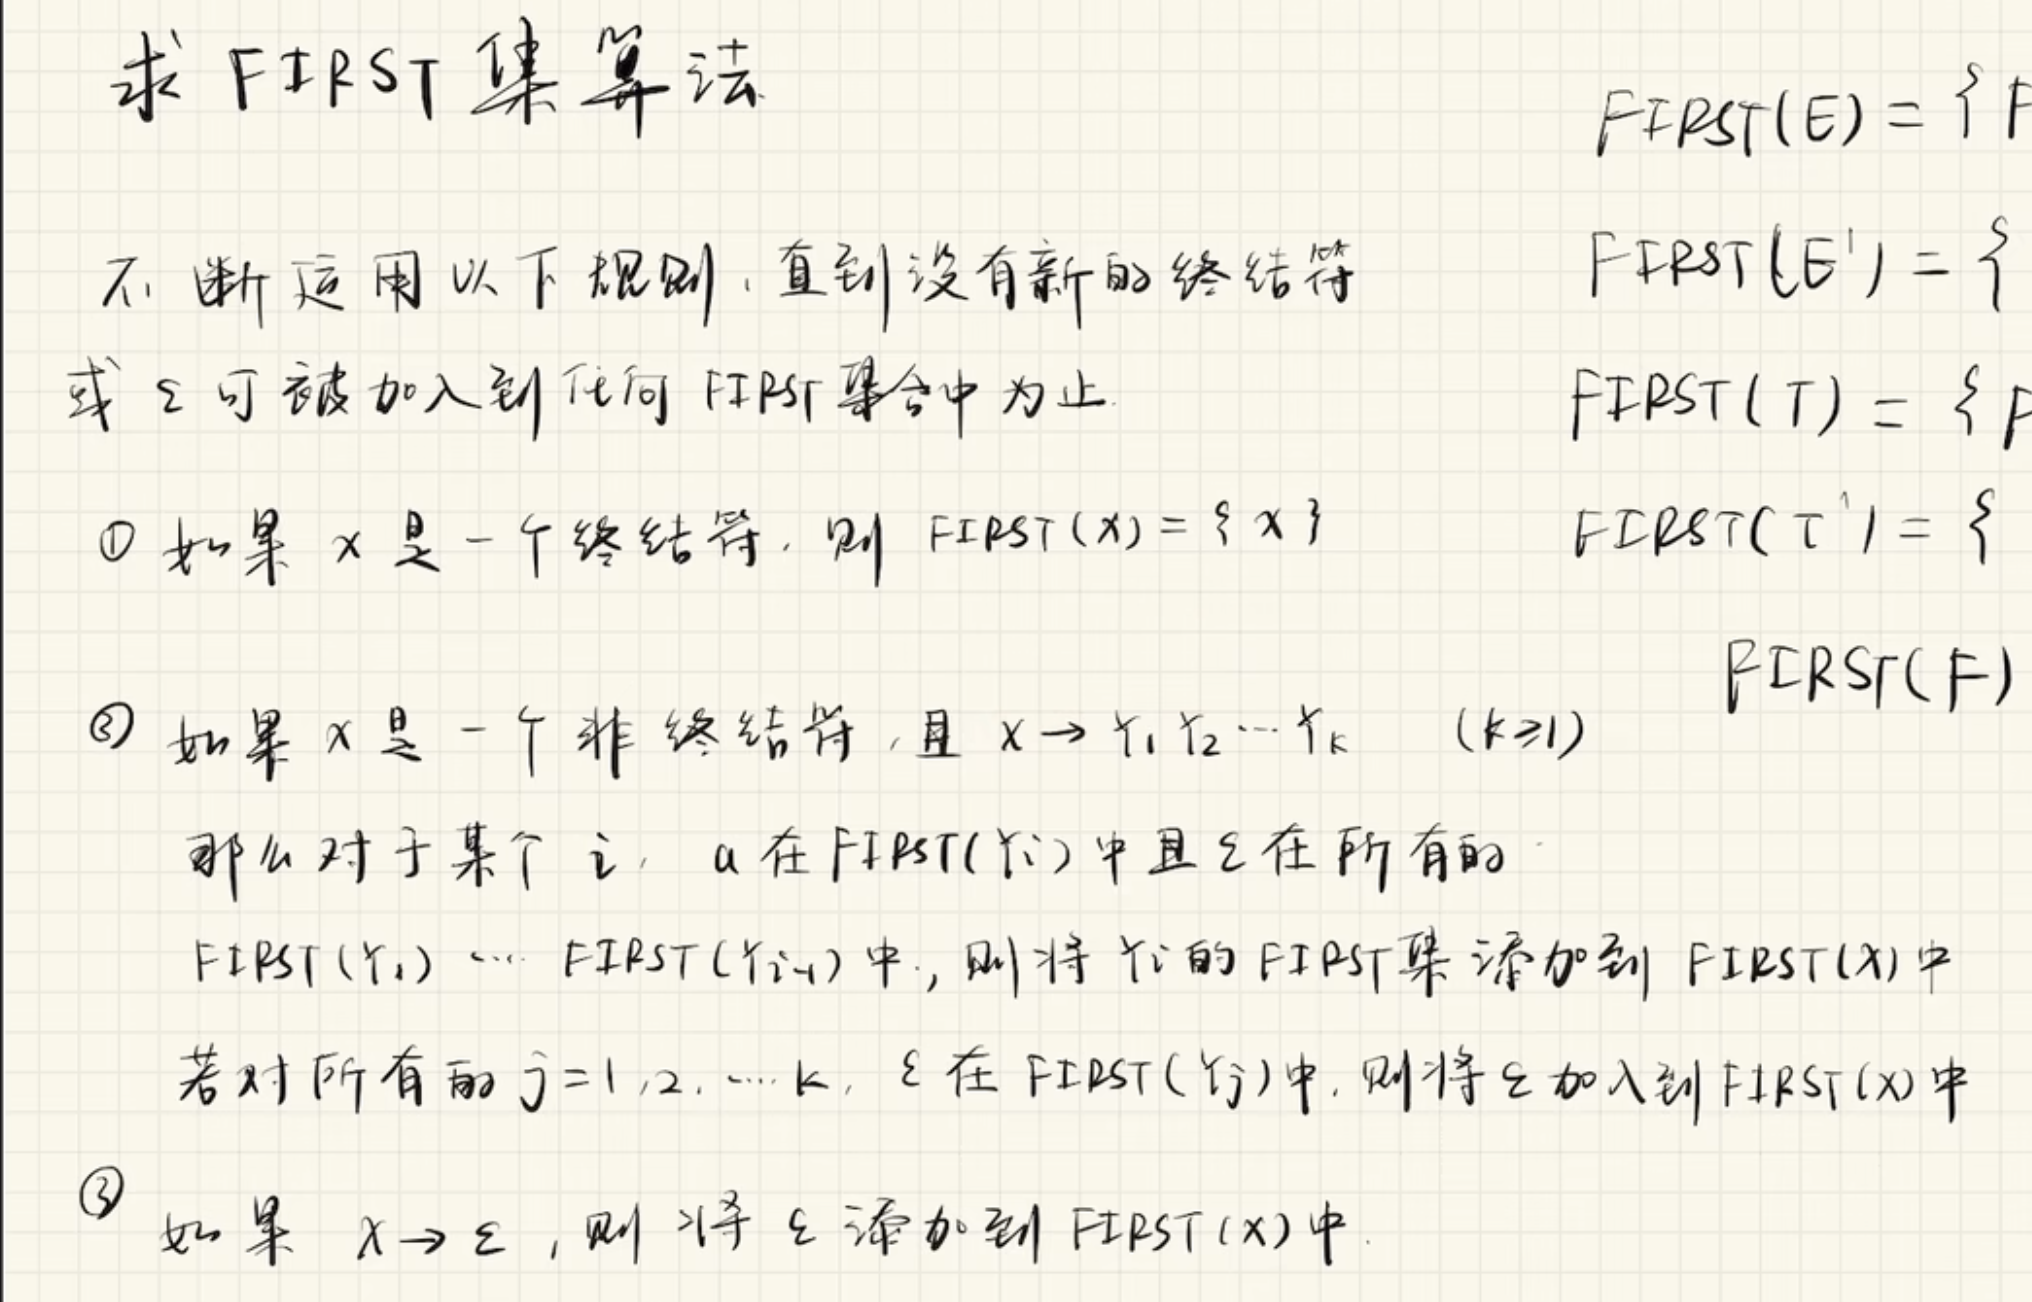 求 FIRST 集算法
不断运用以下规则，直到没有新的终结符
或 ε 可被加入到任何 FIRST 集合中为止.
① 如果 X 是一个终结符，则 FIRST(X) = { X }
② 如果 X 是一个非终结符，且 X → Y₁ Y₂ … Yₖ (k≥1)
那么对于某个 i，a 在 FIRST(Yᵢ) 中且 ε 在所有的
FIRST(Y₁) … FIRST(Yᵢ₋₁) 中，则将 Yᵢ 的 FIRST集 添加到 FIRST(X) 中
若对所有的 j = 1, 2, … k, ε 在 FIRST(Yⱼ) 中，则将 ε 加入到 FIRST(X) 中
③ 如果 X → ε，则将 ε 添加到 FIRST(X) 中.
FIRST(E) = { F
FIRST(E') = {
FIRST(T) = { F
FIRST(T') = {
FIRST(F)